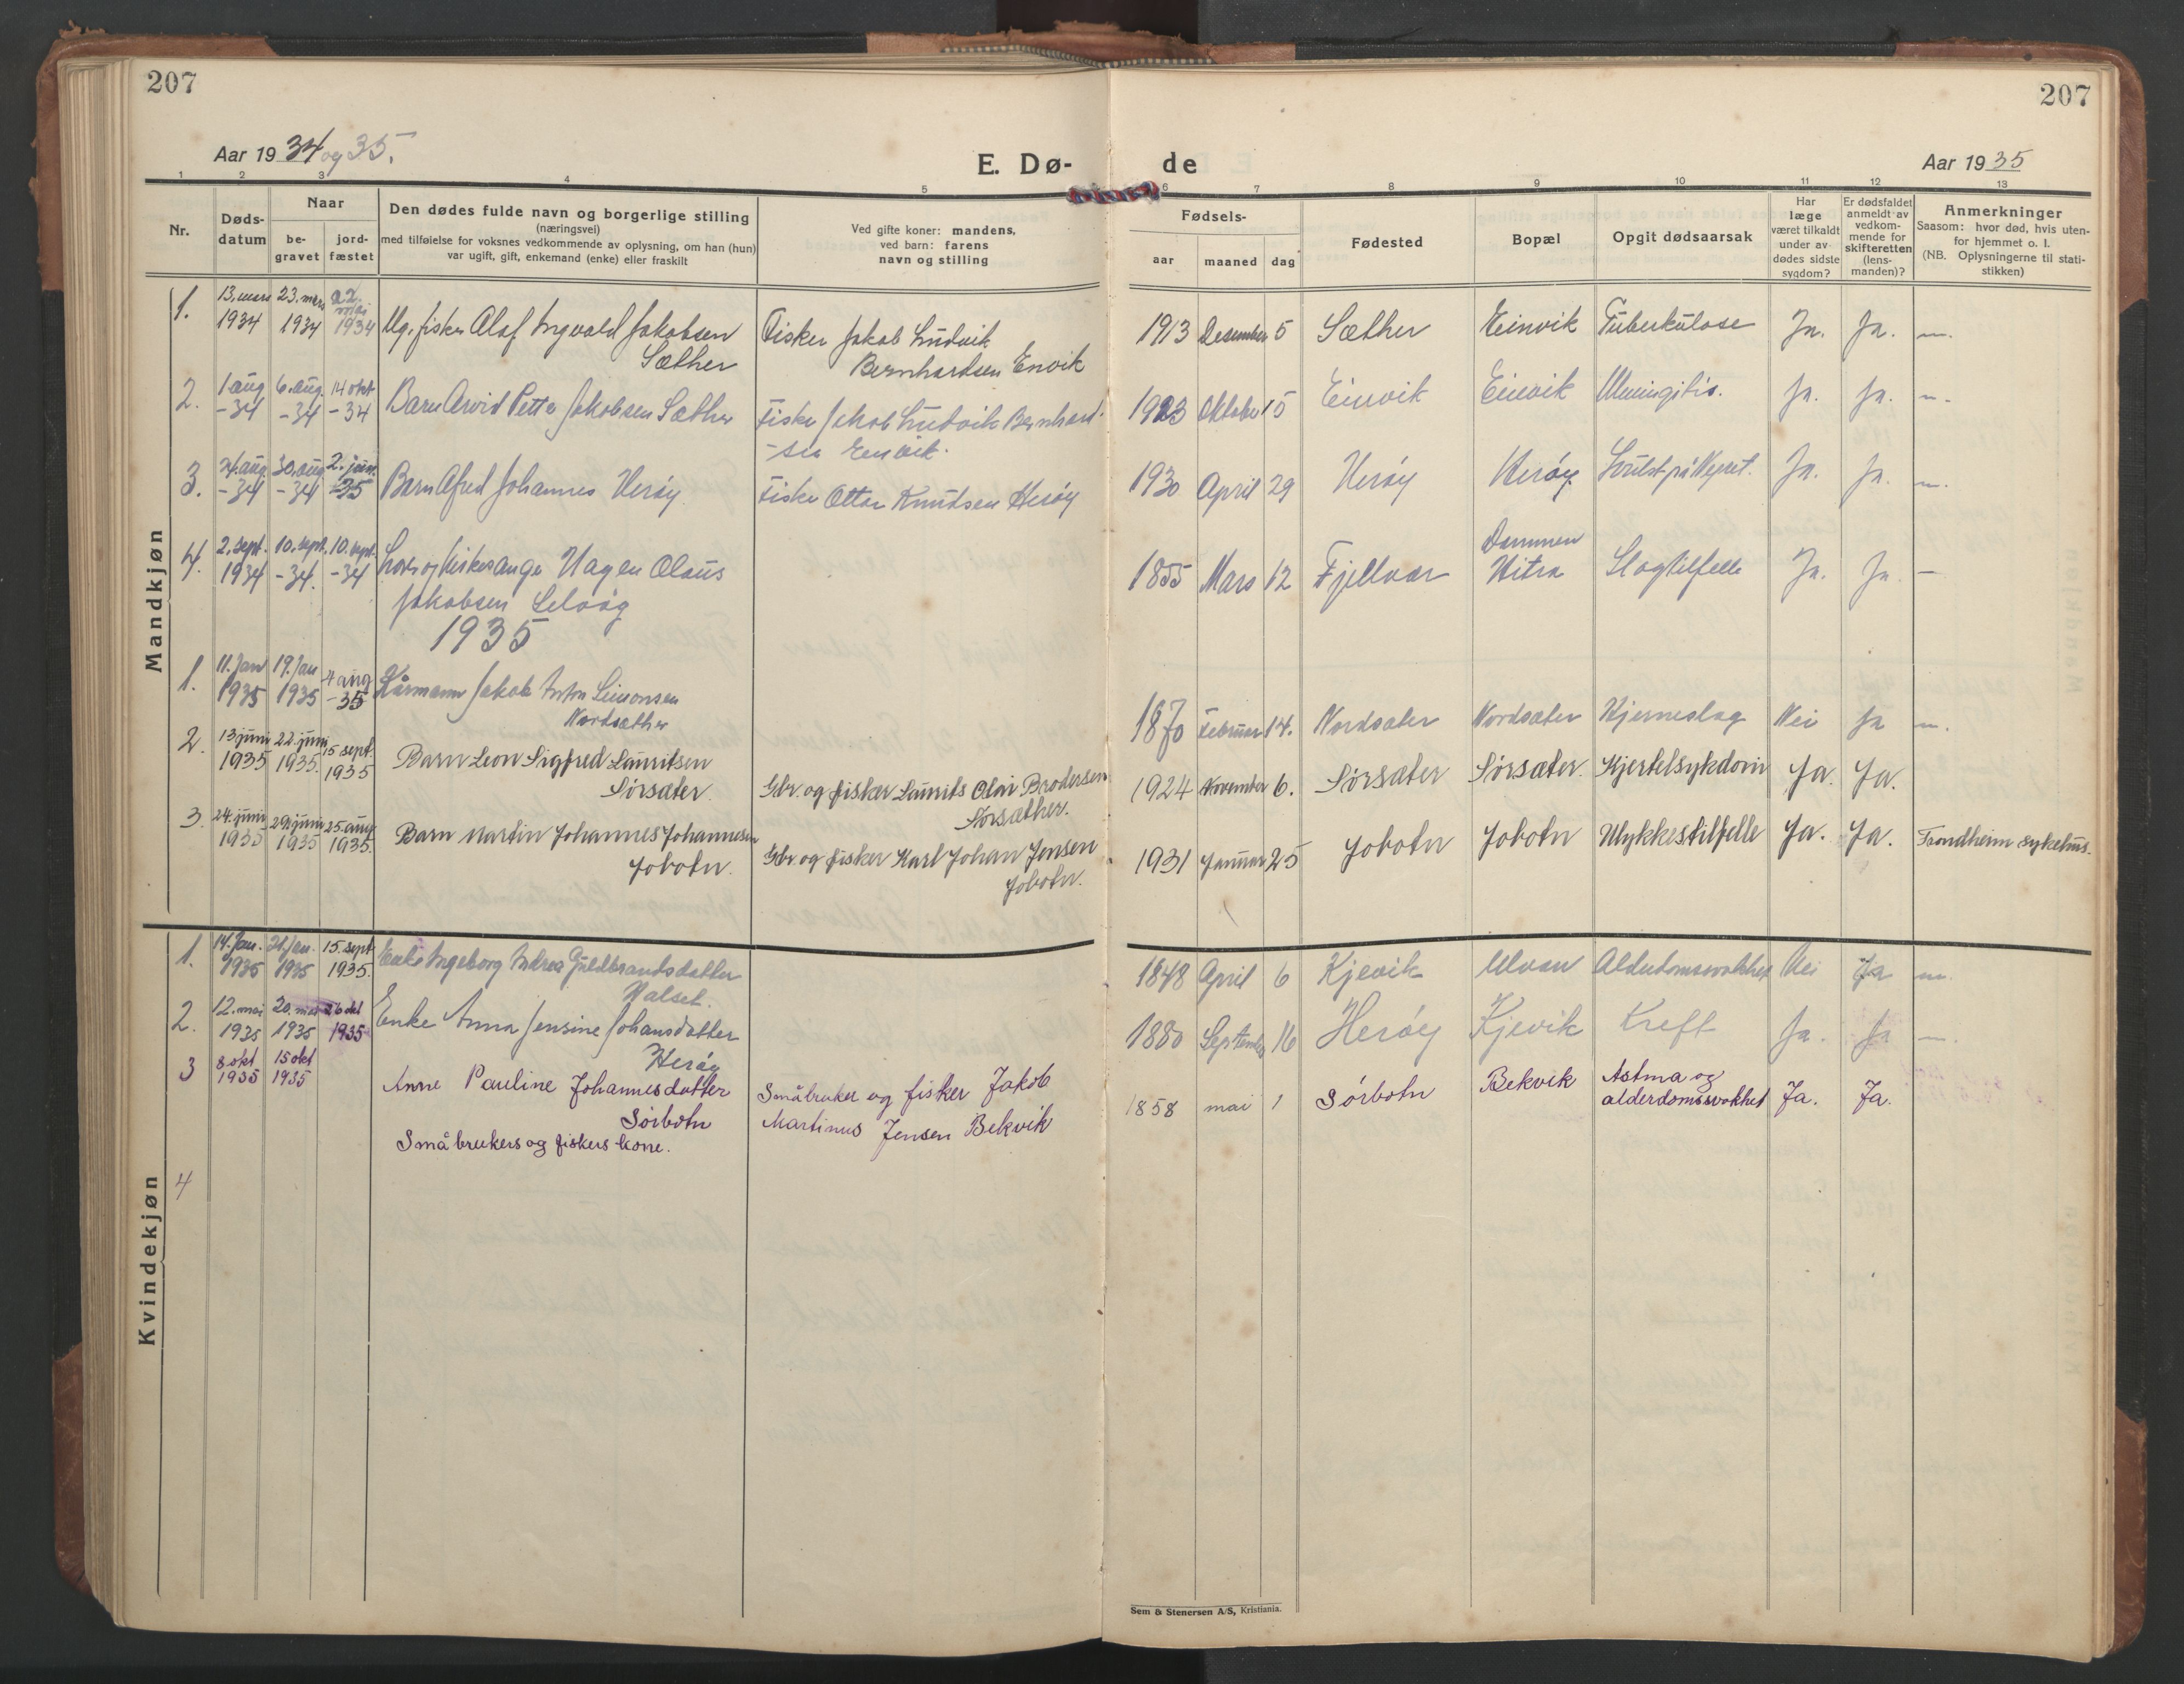 207
207
Aar 1934 og 35.
E. Dø-
de
Aar 1935
1 2 3 4 5 6 7 8 9 10 11 12 13
Nr.
Døds-
datum
Naar
be-
gravet
jord-
fæstet
Den dødes fulde navn og borgerlige stilling
(næringsvei)
med tilføielse for voksnes vedkommende av oplysning, om han (hun)
var ugift, gift, enkemand (enke) eller fraskilt
Ved gifte koner: mandens,
ved barn: farens
navn og stilling
Fødsels-
aar maaned dag
Fødested
Bopæl
Opgit dødsaarsak
Har
læge
været tilkaldt
under av-
dødes sidste
sygdom?
Er dødsfaldet
anmeldt av
vedkom-
mende for
skifteretten
(lens-
manden)?
Anmerkninger
Saasom: hvor død, hvis uten-
for hjemmet o. l.
(NB. Oplysningerne til stati-
stikken)
Mandkjøn
1. 13. mars 23. mars 22. mai
1934 1934 1934 Ug. fisker Olaf Ingvald Jakobsen Fisker Jakob Ludvik 1913 Desember 5 Sæther Einvik Tuberkulose Ja. Ja.
Sæther Bernhardsen Envik
2. 1 aug 6. aug. 14 okt
-34 -34 -34 Barn Arvid Petter Jakobsen Sæther Fisker Jakob Ludvik Bernhard- 1923 Oktober 15 Einvik Einvik Meningitis. Ja. Ja.
-sen Envik.
3. aug 30. aug 2. juni
-34 -34 -35 Barn Alfred Johannes Herøy Fisker Ottar Knudsen Herøy 1930 April 29 Herøy Herøy Ja. Ja.
4. 2. sept. 10. sept. 10. sept.
1934 -34. -34 kirkesanger Hagen Olaus 1855 Mars 12 Fjellvær Dammen Hitra Slagtilfelle Ja. Ja. —
Jakobsen Selvåg
1935
1. 11. Jan 19. Jan 4 aug
1935 1935 -35 Kårmann Jakob Anton Simonsen
Nordsæther 1870 Februar 14. Nordsæter Nordsæter Hjerneslag Nei Ja
2. 13 juni 22. juni 15 sept.
1935 1935. 1935 Barn Leon Sigfred Lauritsen
Sørsæter. Gbr. og fisker Laurits Olai Brodersen 1924 November 6. Sørsæter Sørsæter. Kjertelsykdom Ja. Ja.
Sørsæther.
3. 24. juni 29. juni 25. aug
1935 1935 1935. Barn Martin Johannes Johannesen
Jobotn. Gbr. og fisker Karl Johan Jensen 1931 Januar 25 Jobotn Jobotn Ulykkestilfelle Ja. Ja. Trondheim sykehus.
Jobotn.
Kvindekjøn
1. 14. Jan. 21. Jan. 15. sept
1935 1935 1935. Enke Ingeborg Andrea Guldbrandsdatter 1848 April 6 Kjevik Ulvan Alderdomssvakhet Nei Ja
Valset.
2. 12. mai 20. mai 26 okt
1935 1935 1935 Enke Anna Jensine Johansdatter 1880 September 16 Herøy Kjevik Kreft Ja. Ja
Herøy
3 8. okt 15 okt
1935 1935 Anne Pauline Johannesdatter Småbruker og fisker Jakob 1858 mai 1 Sørbotn Bekvik Astma og
alderdomssvakhet Ja. Ja.
Sørbotn Martinus Jensen Bekvik
Småbrukers og fiskers kone.
4
Sem & Stenersen A/S, Kristiania.